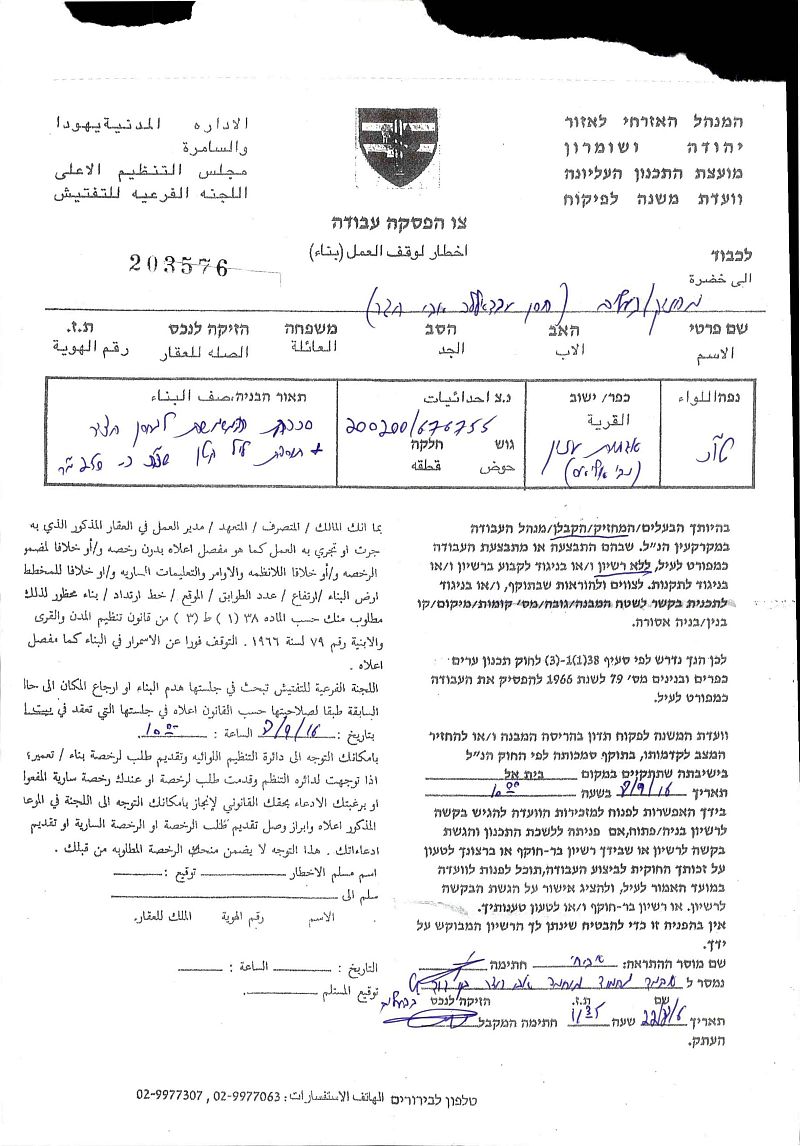 המנהל האזרחי לאזור
יהודה ושומרון
מועצת התכנון העליונה
וועדת משנה לפיקוח
الاداره المدنية يهودا
والسامرة
مجلس التنظيم الاعلى
اللجنه الفرعيه للتفتيش
צו הפסקה עבודה
اخطار لوقف العمل (بناء)
203576
לכבוד
الى خضرة
שם פרטי האב הסב משפחה הזיקה לנכס ת.ז.
الاسم الاب الجد العائلة الصله للعقار رقم الهوية
נפה\اللواء כפר/ ישוב נ.צ احداثيات תאור הבניה/صف البناء
القرية
200200/676755
גוש חלקה
حوض قطقه
בהיותך הבעלים/המחזיק/הקבלן/מנהל העבודה
במקרקעין הנ"ל. שבהם התבצעה או מתבצעת העבודה
כמפורט לעיל, ללא רשיון ו/או בניגוד לקבוע ברשיון ו/או
בניגוד לתקנות. לצווים ולהוראות שבתוקף, ו/או בניגוד
לתכנית בקשר לשטח המבנה/גובה/מס' קומות/מיקום/קו
בנין/בניה אסורה.
לכן הנך נדרש לפי סעיף 38(1)-(3) לחוק תכנון ערים
כפרים ובנינים מס' 79 לשנת 1966 להפסיק את העבודה
כמפורט לעיל.
וועדת המשנה לפקוח תדון בהריסה המבנה ו/או להחזיר
המצב לקדמותו, בתוקף סמכותה לפי החוק הנ"ל
בישיבתה שתקיים במקום בית אל
תאריך 8/9/16 בשעה 10:00
בידך האפשרות לפנות למזכירות הוועדה להגיש בקשה
לרשיון בניה/פתוח,אם פניתה ללשכת התכנון והגשת
בקשה לרשיון או שבידך רשיון בר-חוקף או ברצונך לטעון
על זכותך החוקית לביצוע העבודה,תוכל לפנות לוועדה
במועד האמור לעיל, ולהציג אישור על הגשת הבקשה
לרשיון. או רשיון בר-חוקף ו/או לטעון טענותיך.
אין בהפניה זו כדי להבטיח שינתן לך הרשיון המבוקש על
ידך.
שם מוסר ההתראה: חתימה
נמסר ל
שם ת.ז. הזיקה לנכס
תאריך שעה 11:35 חתימה המקבל
העתק.
بما انك المالك / المتصرف / المتعهد / مدير العمل في العقار المذكور الذي به
جرت او تجري به العمل كما هو مفصل اعلاه بدون رخصه و/أو خلافا لمضمو
الرخصه و/أو خلافا للانظمه والاوامر والتعليمات الساريه و/او خلافا للمخطط
ارض البناء /ارتفاع / عدد الطوابق / الموقع / خط ارتداد / بناء محظور لذلك
مطلوب منك حسب الماده ٣٨ (١) ط (٣) من قانون تنظيم المدن والقرى
والابنية رقم ٧٩ لسنة ١٩٦٦. التوقف فورا عن الاسمرار في البناء كما مفصل
اعلاه .
اللجنة الفرعية للتفتيش تبحث في جلستها هدم البناء او ارجاع المكان الى حال
السابقة طبقا لصلاحيتها حسب القانون اعلاه في جلستها التي تعقد في بيت
بتاريخ : 8/9/16 الساعة : 10:00
بامكانك التوجه الى دائرة التنظيم اللوائيه وتقديم طلب لرخصة بناء / تعمير؛
اذا توجهت لدائره التنظم وقدمت طلب لرخصة او عندك رخصة سارية المفعو
او برغبتك الادعاء بحقك القانوني لإنجاز بامكانك التوجه الى اللجنة في الموعا
المذكور اعلاه وابراز وصل تقديم طلب الرخصة او الرخصة السارية او تقديم
ادعاءاتك . هذا التوجه لا يضمن منحك الرخصة المطلوبه من قبلك .
اسم مسلم الاخطار توقيع :
سلم الى
الاسم رقم الهوية الملك للعقار.
التاريخ : الساعة :
توقيع المستلم
טלפון לבירורים الهاتف الاستفسارات: 02-9977063 , 02-9977307